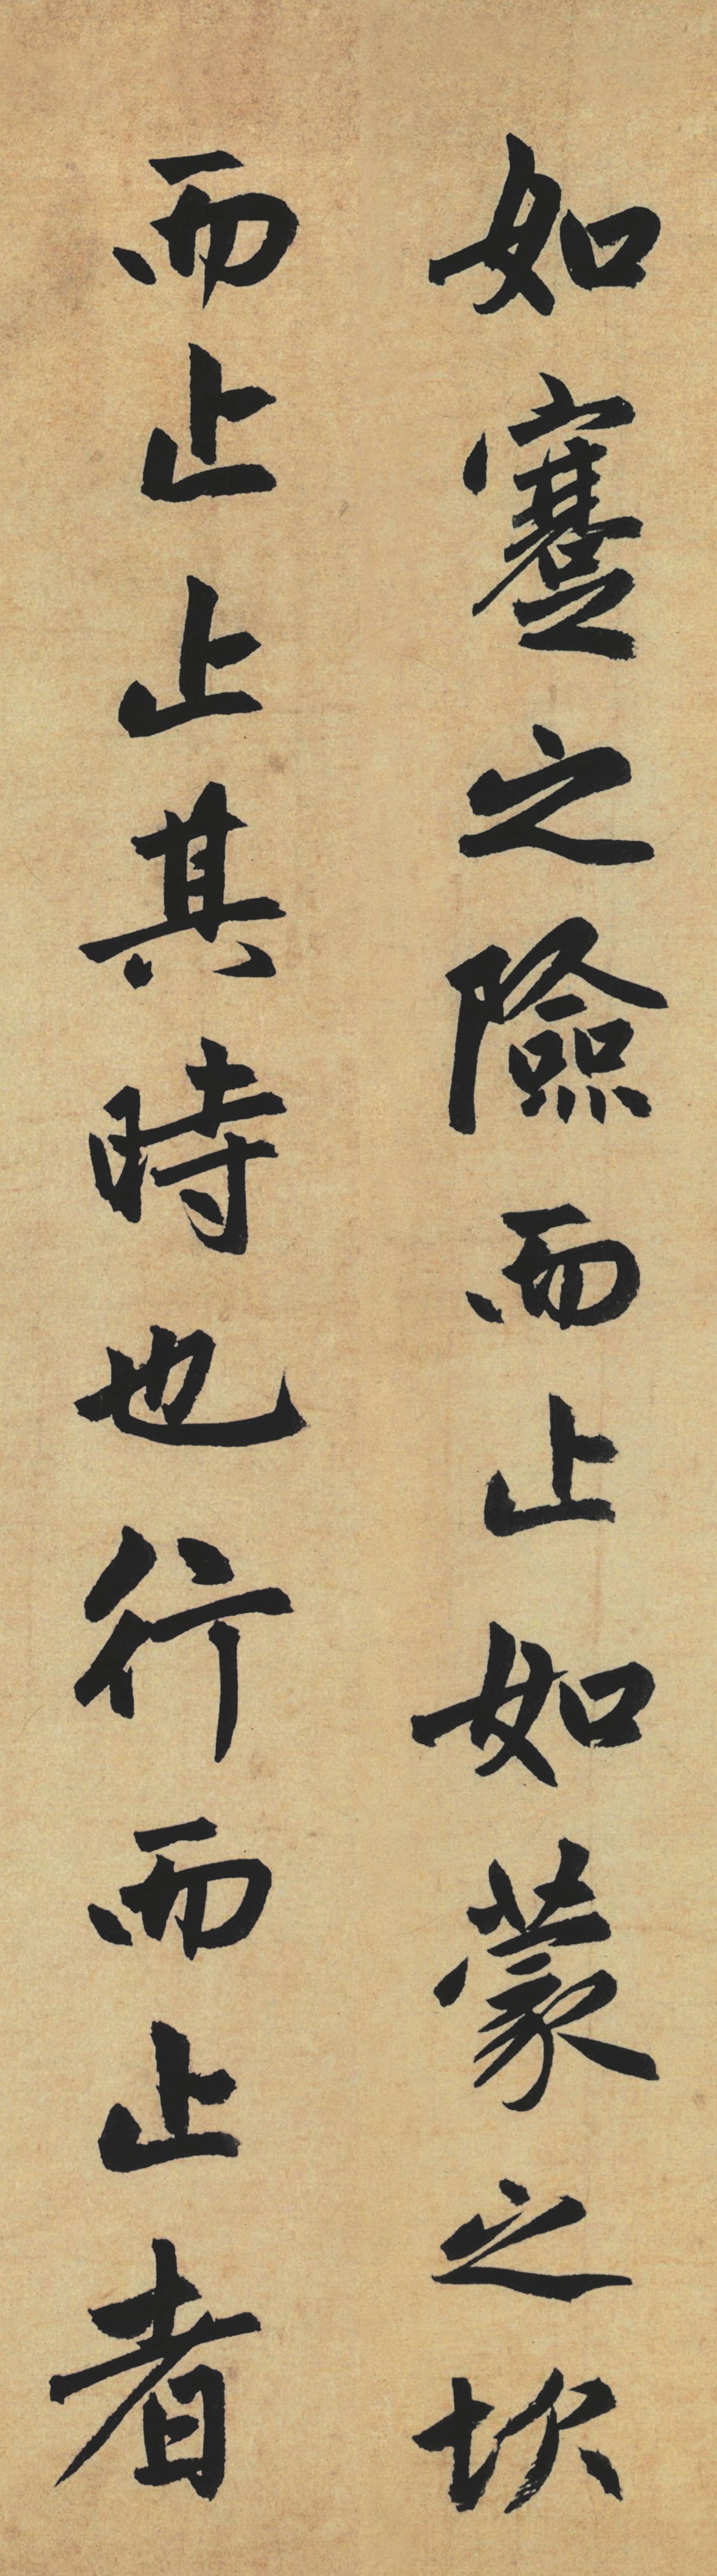 如蹇之險而止如蒙之坎
而止止其時也行而止者